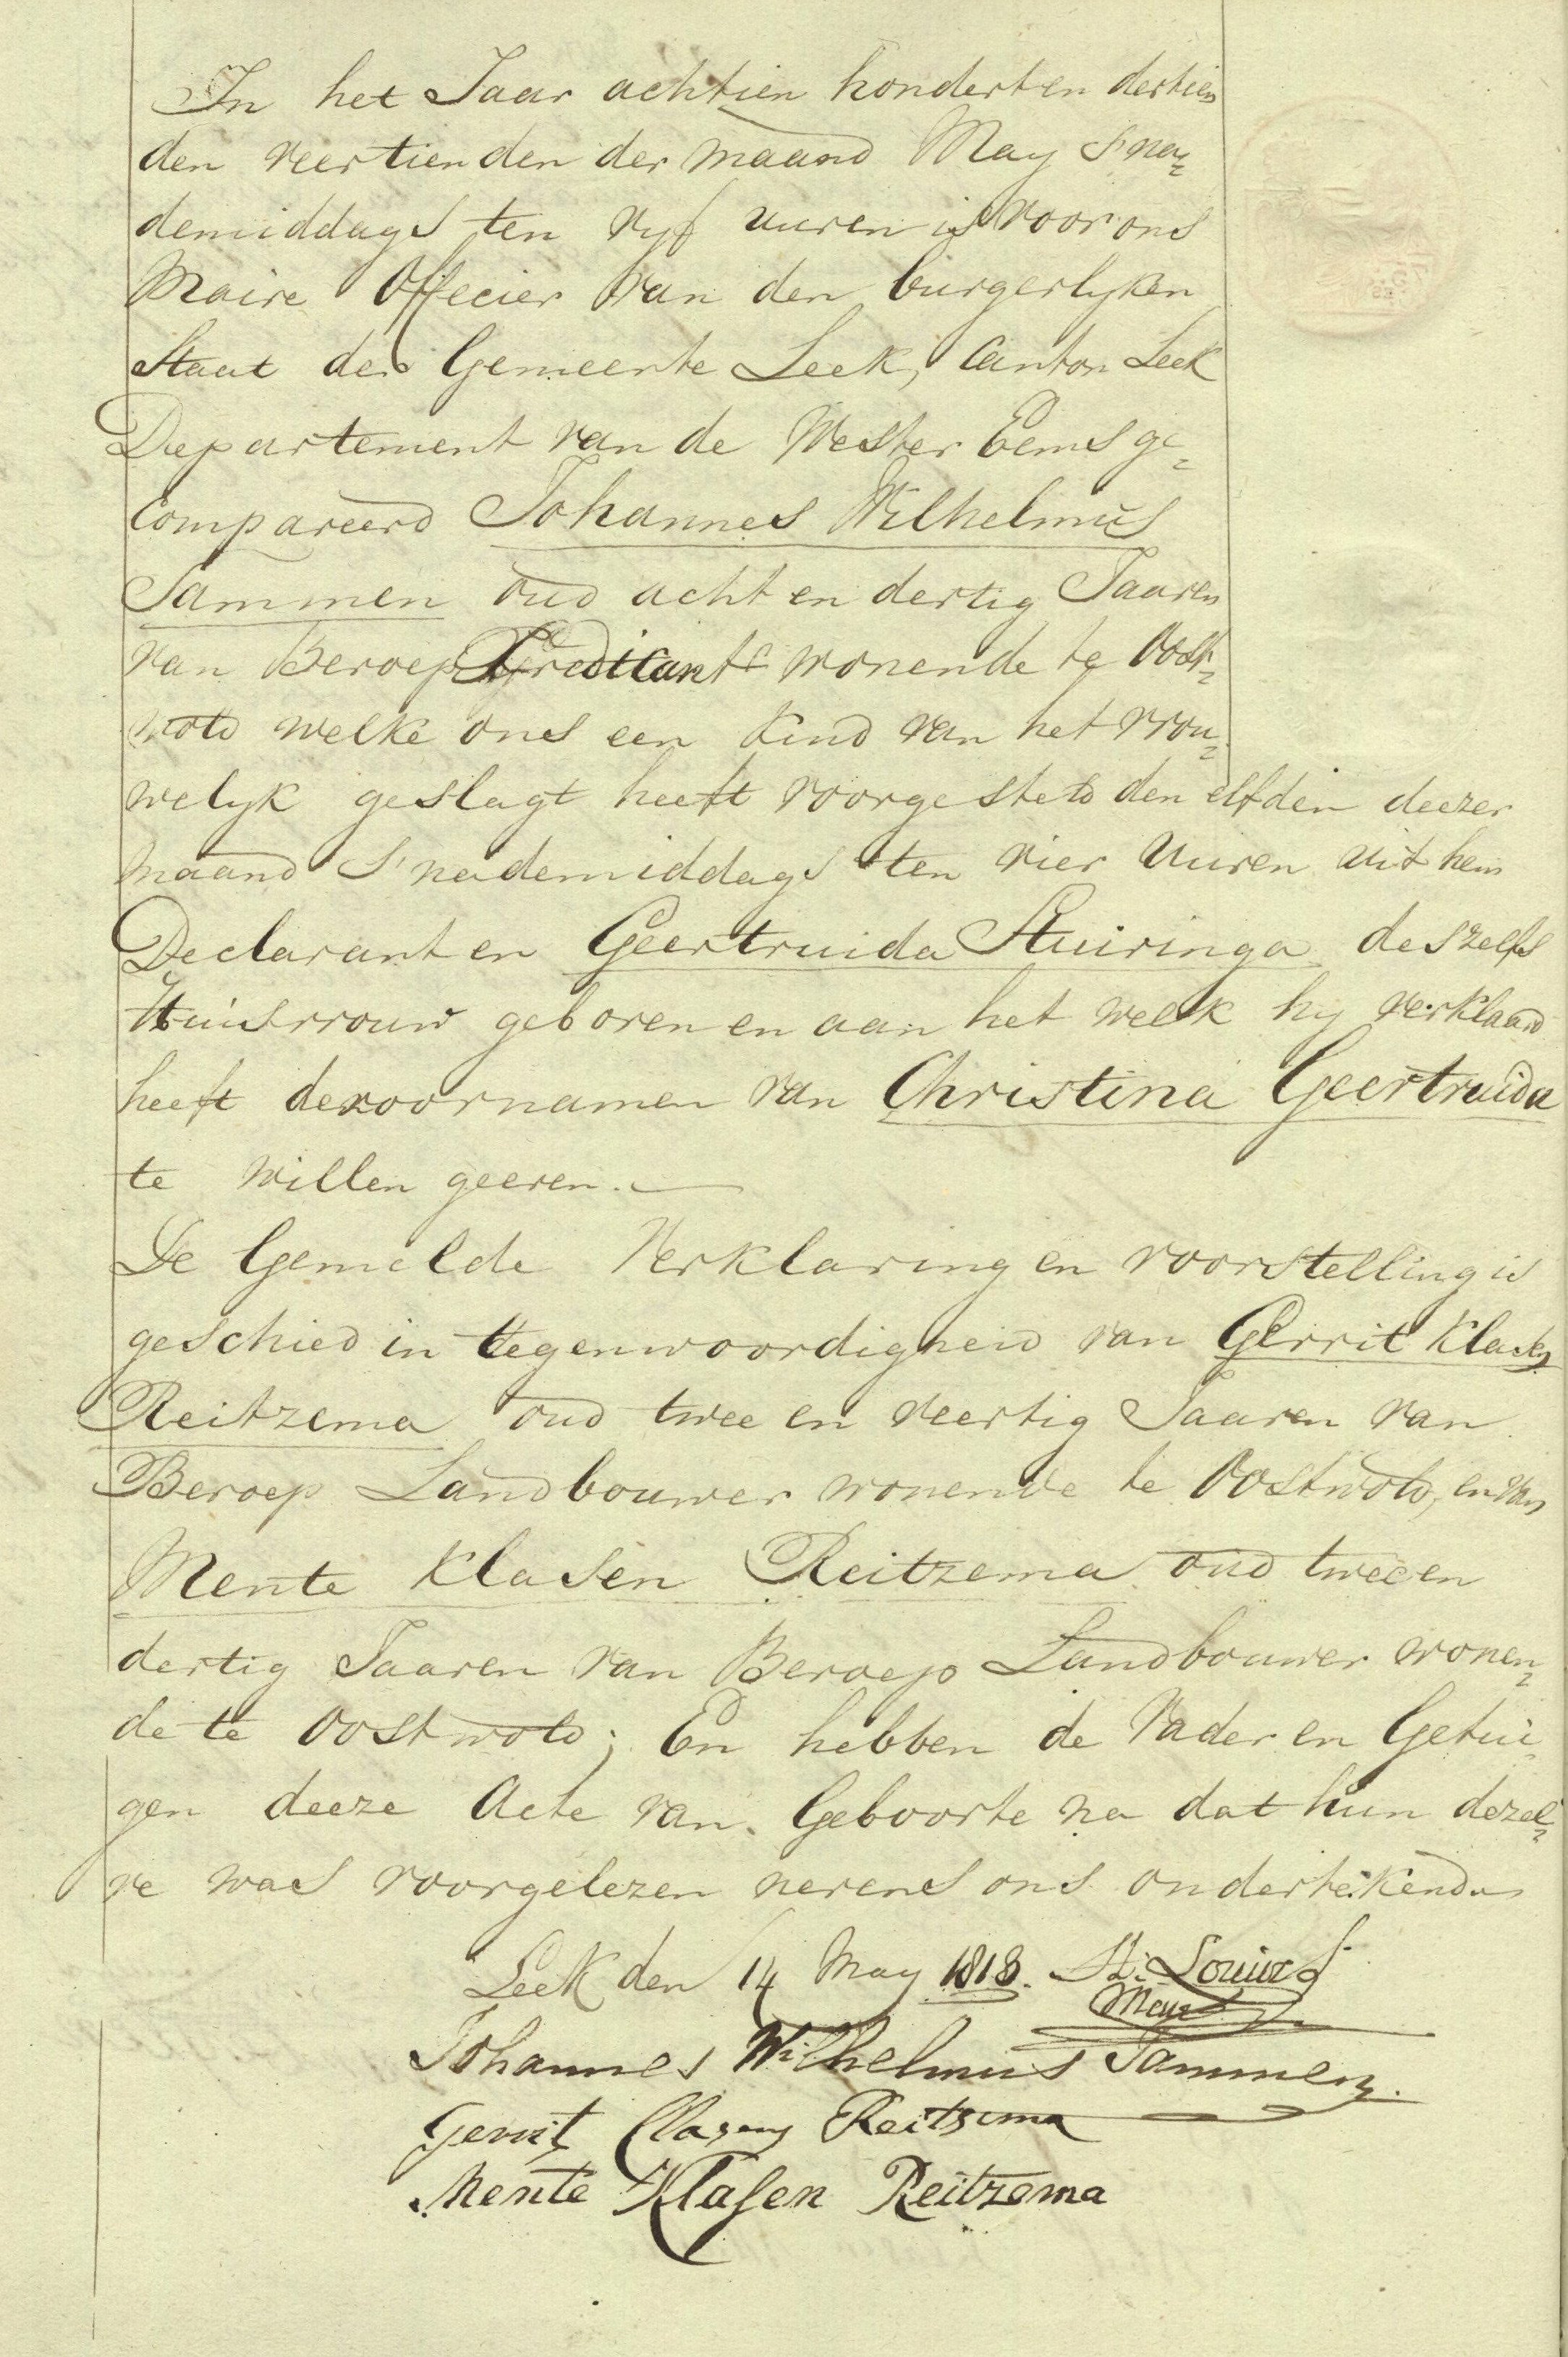 In het Jaar achtien hondert en dertien
den veertienden der maand May s'na=
demiddags ten vyf uuren is voor ons
Maire Officier van den burgerlyken
Staat der Gemeente Leek, Canton Leek
Departement van de Wester Eems ge=
compareerd Johannes Wilhelmus
Tammen oud acht en dertig Jaaren
van Beroep Predicant wonende te Oost=
wold welke ons een kind van het vrou=
welyk geslagt heeft voorgesteld den elfden deezer
maand s'nademiddags ten vier Uuren uit hem
Declarant en Geertruida Stuiringa deszelfs
Huisvrouw geboren en aan het welk hy verklaard
heeft de voornamen van Christina Geertruida
te willen geeven.
De Gemelde Verklaring en voorstelling is
geschied in tegenwoordigheid van Gerrit Klasen
Reitzema oud twee en veertig Jaaren van
Beroep Landbouwer wonende te Oostwold, en van
Mente Klasen Reitzema oud twee en
dertig Jaaren van Beroep Landbouwer wonen=
de te Oostwold; En hebben de Vader en Getui=
gen deeze Acte van Geboorte na dat hun dezel=
ve was voorgelezen nevens ons ondertekend.
Leek den 14 May 1813.
Johannes Wilhelmus Tammen.
Gerrit Clasens Reitsema
Mente Klasen Reitzema